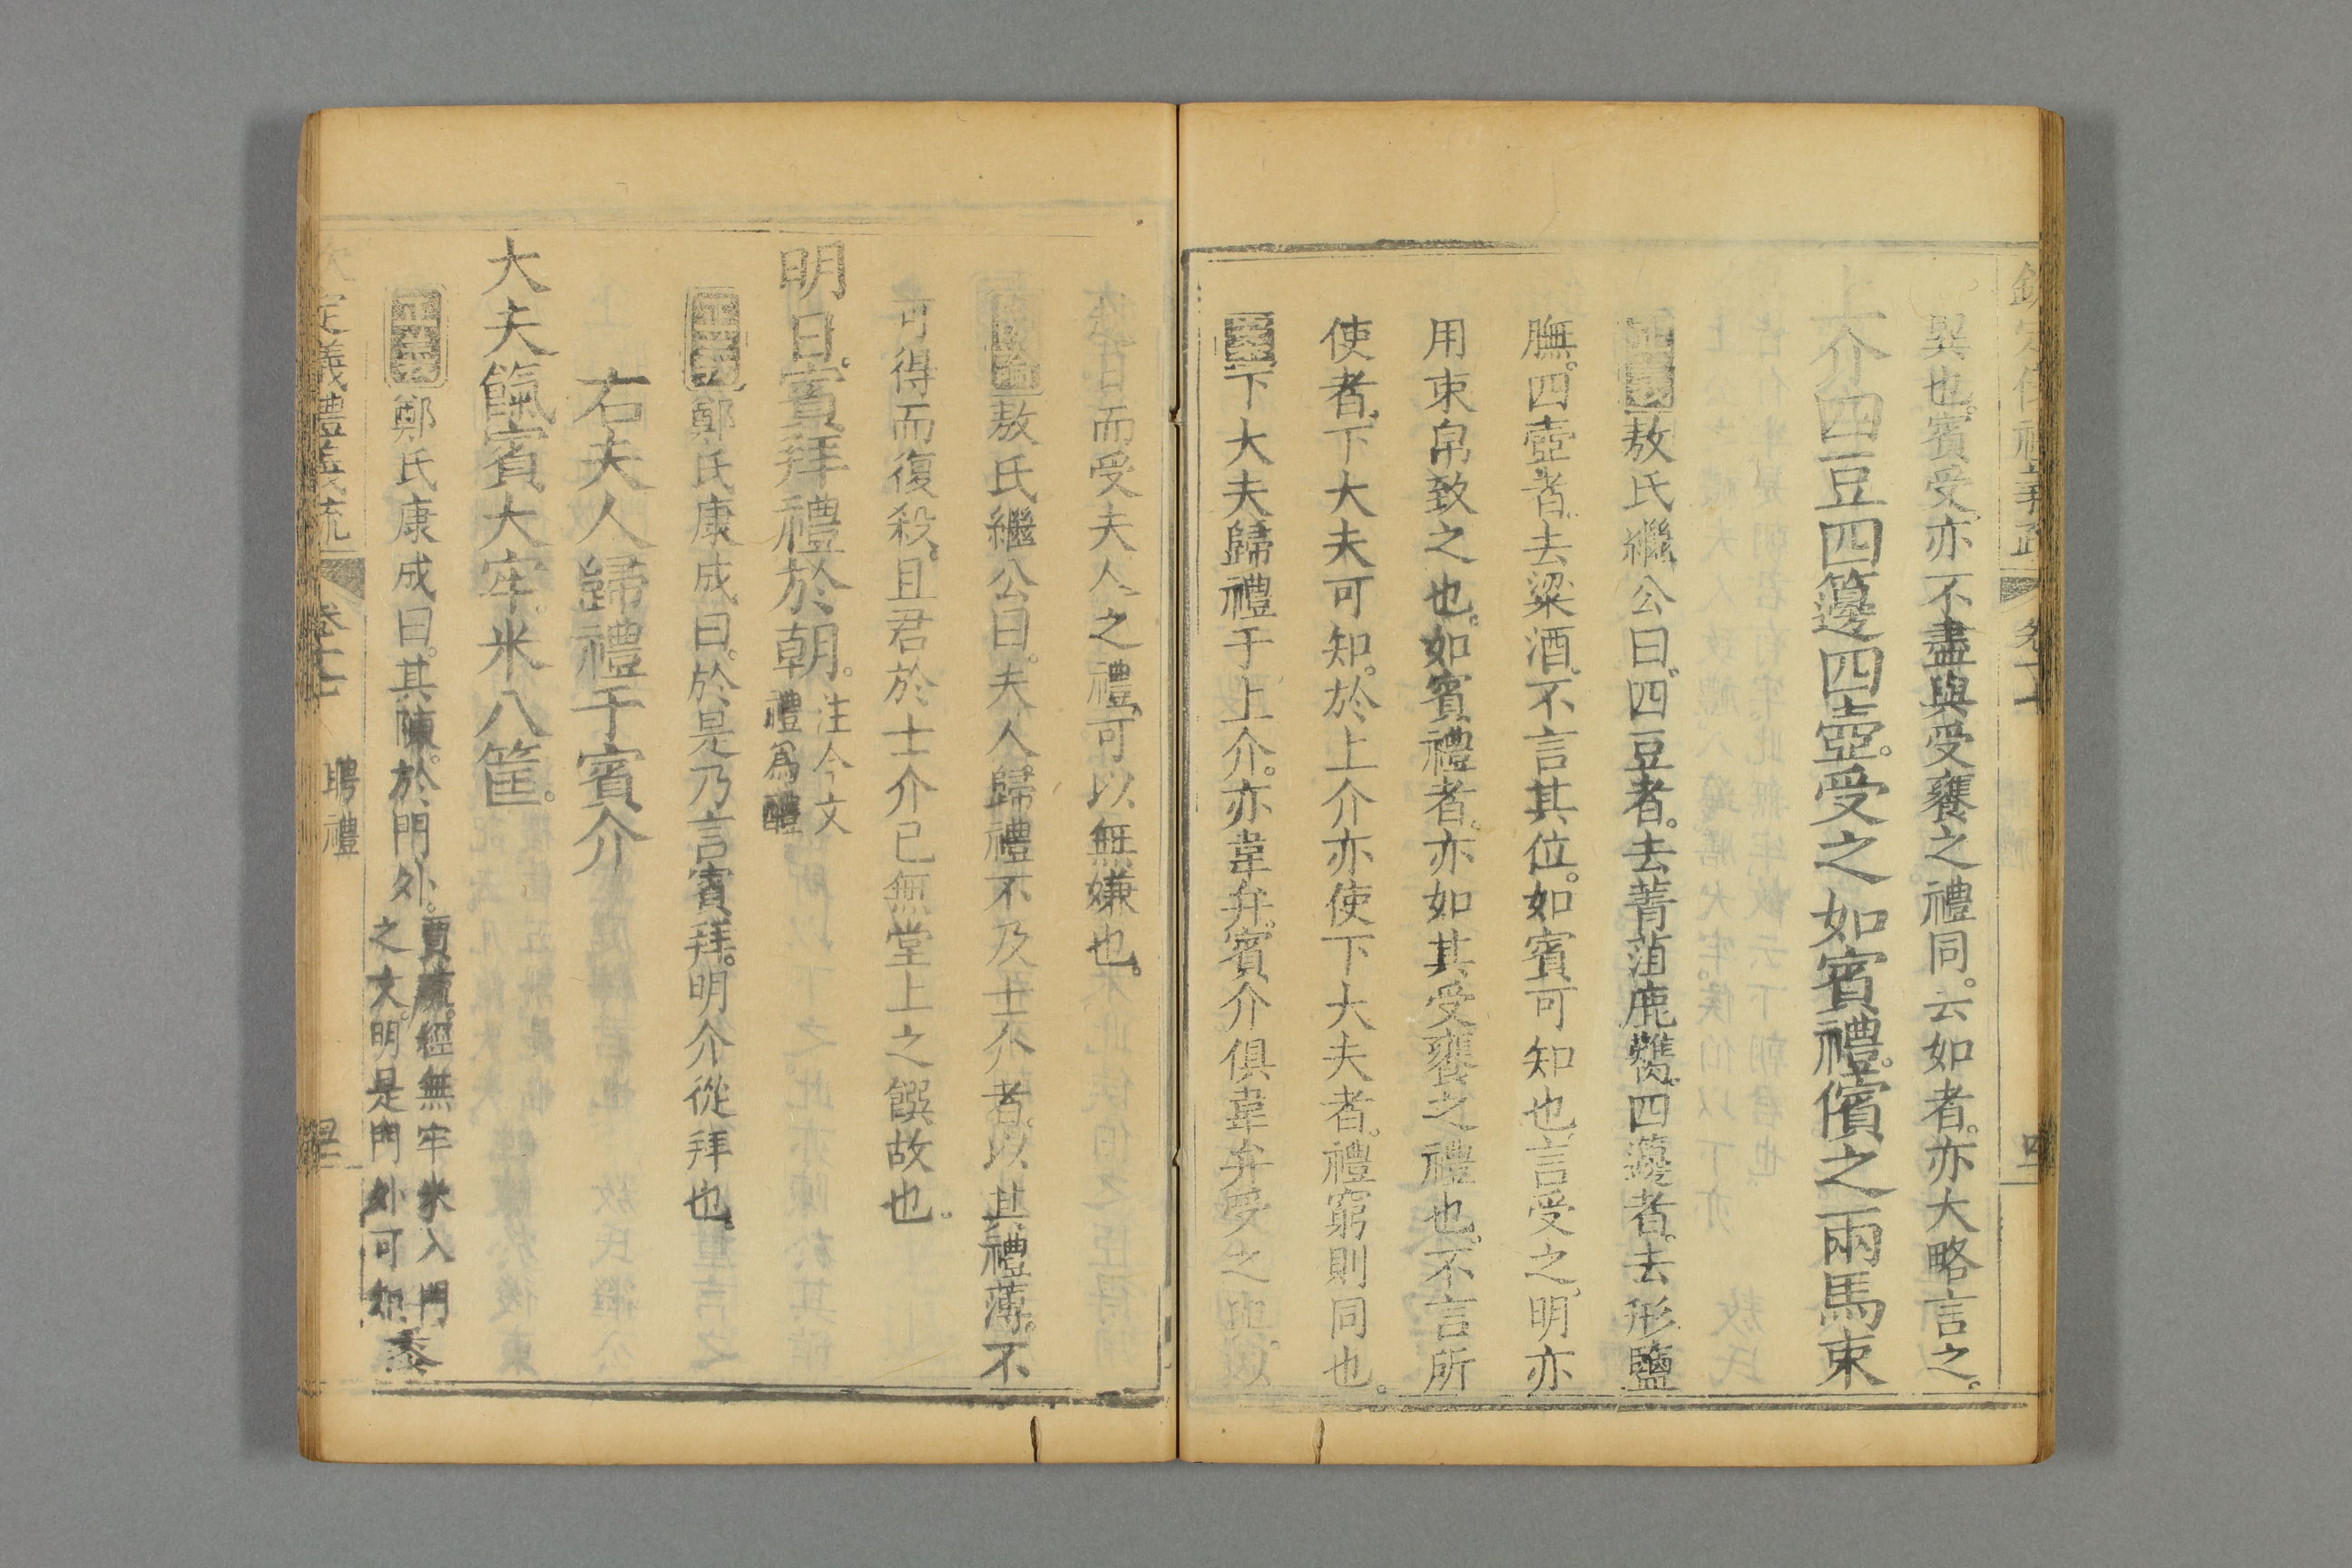 異也。賓受。亦不盡與受饔之禮同。云如者。亦大略言之。
上介四豆四籩四壺。受之如賓禮。儐之兩馬束
敖氏繼公曰。四豆者。去菁菹鹿臡。四籩者。去形鹽
膴。四壺者。去粱酒。不言其位。如賓可知也。言受之。明亦
用束帛致之也。如賓禮者。亦如其受饔之禮也。不言所
使者。下大夫可知。於上介亦使下大夫者。禮窮則同也。
下大夫歸禮于上介。亦韋弁。賓介俱韋弁受之
而受夫人之禮。可以無嫌也。
敖氏繼公曰。夫人歸禮不及士介者。以其禮薄。不
可得而復殺。且君於士介已無堂上之饌故也。
明日。賓拜禮於朝。注今文禮爲醴
鄭氏康成曰。於是乃言賓拜。明介從拜也。
右夫人歸禮于賓介
大夫餼賓大牢。米八筐。
正義鄭氏康成曰。其陳。於門外。賈疏。經無牢米入門之文。明是門外可知。黍
定儀禮義疏 卷十七 聘禮